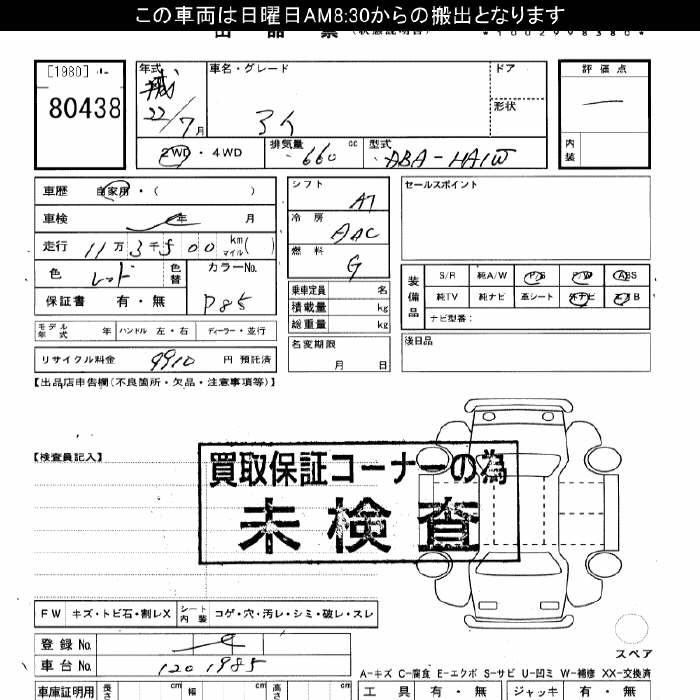 この車両は日曜日AM8:30からの搬出となります
出品票 (状態説明書) *1002998380*
[1980]
80438
年式 平成 22/7月
車名・グレード アイ
ドア
形状
評価点
内装
2WD・4WD
排気量 660 cc
型式 ABA-HA1W
車歴 自家用・( )
車検 年 月
走行 11万3千500 km マイル( )
色 レッド 色替
カラーNo. P85
保証書 有・無
モデル年式 年 ハンドル 左・右 ディーラー・並行
リサイクル料金 9910 円 預託済
シフト AT
冷房 AAC
燃料 G
乗車定員 名
積載量 kg
総重量 kg
名変期限
月 日
セールスポイント
装備品
S/R 純A/W P/S P/W ABS
純TV 純ナビ 革シート 外ナビ エアB
ナビ型番:
後日品
【出品店申告欄(不良箇所・欠品・注意事項等)】
【検査員記入】
買取保証コーナーの為
未検査
FW キズ・トビ石・割レX シート内装 コゲ・穴・汚レ・シミ・破レ・スレ
登録No.
車台No. 1201985
スペア
A-キズ C-腐食 E-エクボ S-サビ U-凹ミ W-補修 XX-交換済
車庫証明用 長さ cm 幅 cm 高さ cm
工具 有・無 ジャッキ 有・無